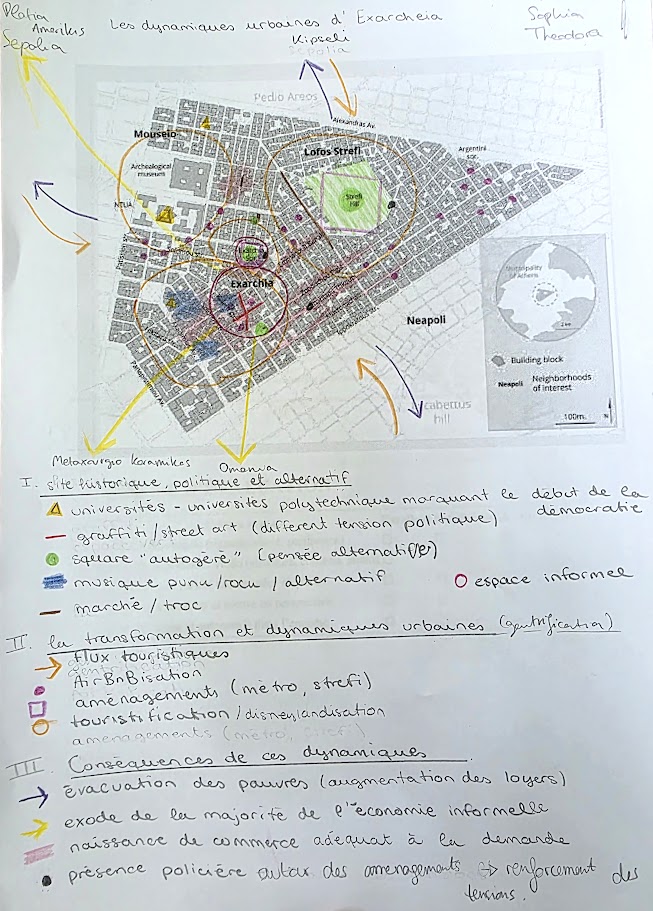 Platia
Amerikis
Sepolia
Les dynamiques urbaines d'Exarcheia
Kipseli
Sepolia
Sophia
Theodora
Pedio Areos
Alexandras Av.
Mouseio
Lofos Strefi
Argentini
sqr.
Archealogical
museum
Strefi
Hill
NTUA
Patision str.
Exarchia
Municipality
of Athens
2 km
Neapoli
Building block
Neapoli Neighborhoods
of interest
100m
N
cabettus
hill
Metaxourgio Keramikos
Omonia
I. site historique, politique et alternatif
universités - universités polytechnique marquant le début de la
démocratie
graffiti/street art (different tension politique)
square "autogéré" (pensée alternative)
musique punk/rock / alternatif
espace informel
marché / troc
II. la transformation et dynamiques urbaines (gentrification)
flux touristiques
AirBnBisation
aménagements (mètro, strefi)
touristification/disneylandisation
amenagements (metro, strefi)
III. Conséquences de ces dynamiques
évacuation des pauvres (augmentation des loyers)
exode de la majorité de l'économie informelle
naissance de commerce adéquat à la demande
présence policière autour des amenagements ↔ renforcement des
tensions.